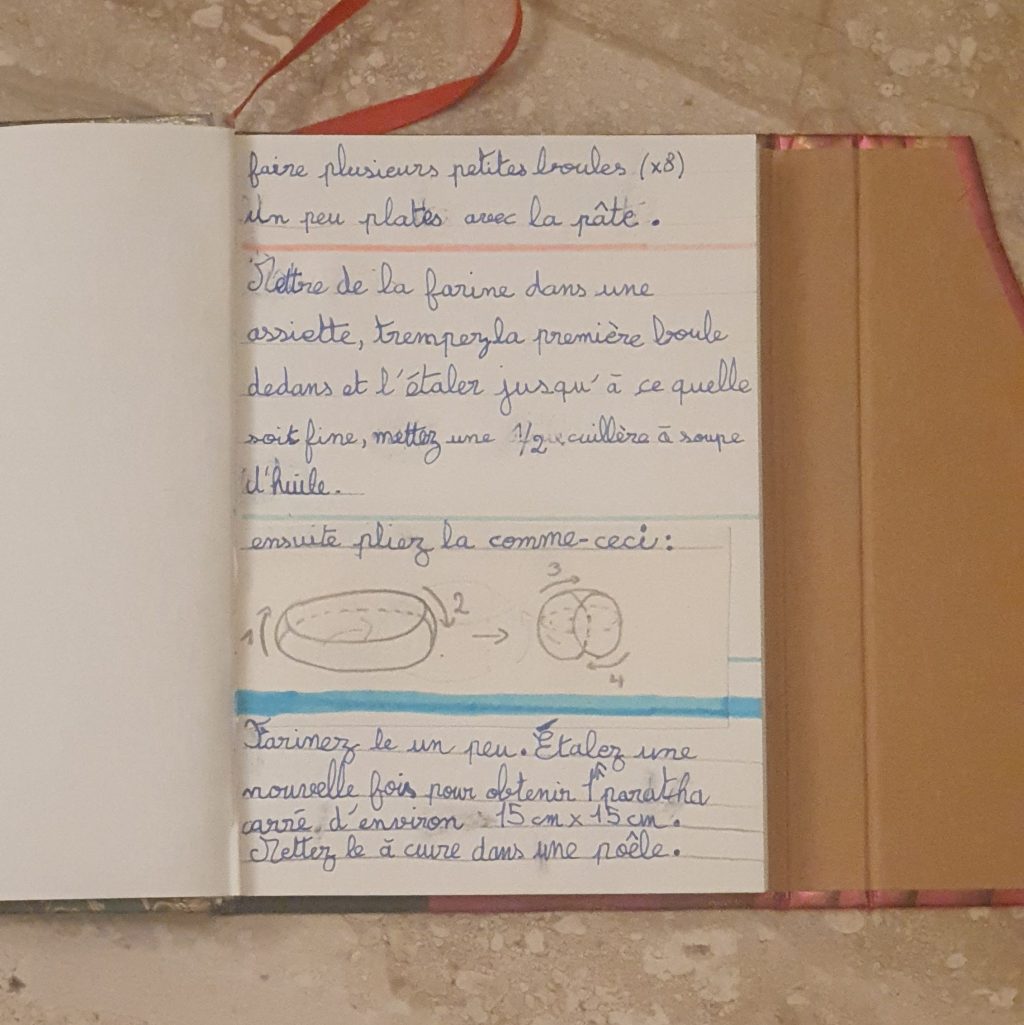 faire plusieurs petites boules (x8)
Un peu plates avec la pâte.
Mettre de la farine dans une
assiette, trempez la première boule
dedans et l'étaler jusqu'à ce quelle
soit fine, mettez une 1/2 cuillère à soupe
d'huile.
ensuite pliez la comme-ceci :
1 2 → 3 4
Farinez le un peu. Étalez une
nouvelle fois pour obtenir 1 paratha
carré d'environ 15 cm x 15 cm.
Mettez le à cuire dans une poêle.